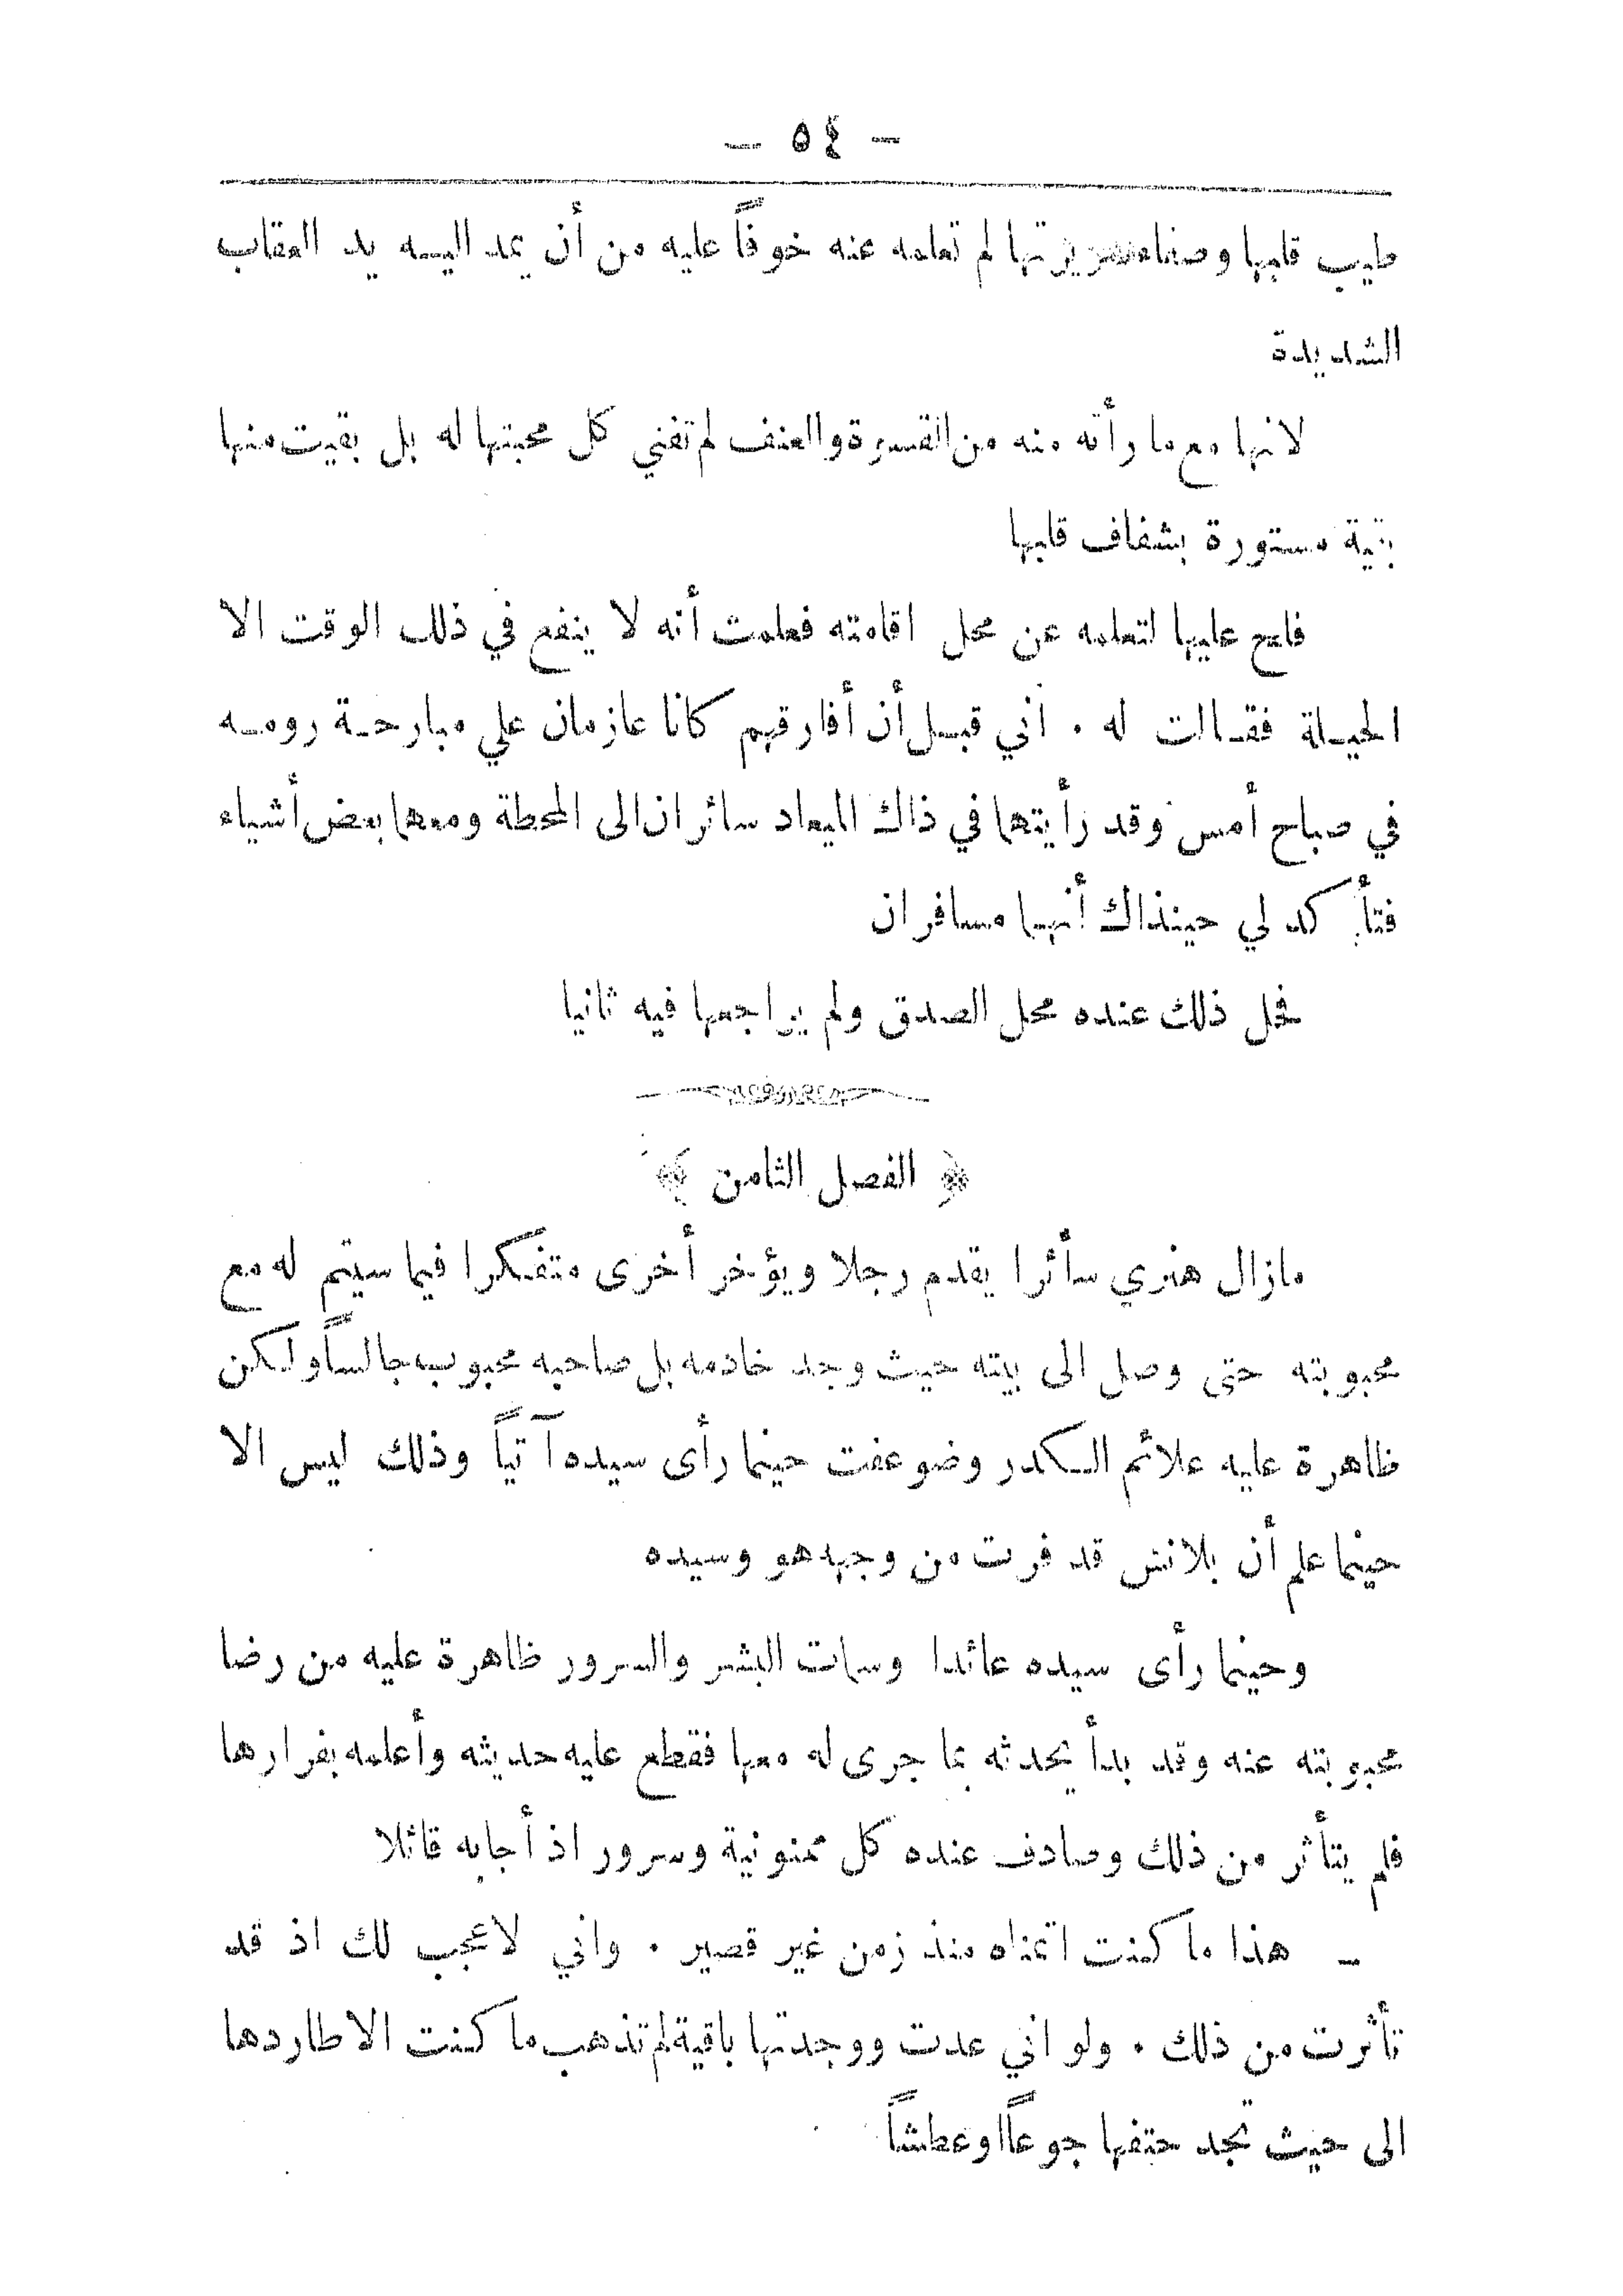 — ٥٤ —
طيب قلبها وصفاء سريرتها لم تعلمه عنه خوفاً عليه من أن يمد اليـه يد العقاب
الشديدة
لانها مع ما رأته منه من القسوة والعنف لم تفني كل محبتها له بل بقيت منها
بقية مستورة بشغاف قلبها
فالح عليها لتعلمه عن محل اقامته فعلمت أنه لا ينفع في ذلك الوقت الا
الحيـلة فقـالت له . اني قبـل أن أفارقهم كانا عازمان علي مبارحـة رومـه
في صباح أمس وقد رأيتهما في ذاك الميعاد سائران الى المحطة ومعهما بعض أشياء
فتأكد لي حينذاك أنهـما مسافران
فحل ذلك عنده محل الصدق ولم يراجعها فيه ثانيا
﴿ الفصل الثامن ﴾
مازال هنري سأئرا يقدم رجلا ويؤخر أخرى متفكرا فيما سيتم له مع
محبوبته حتى وصل الى بيته حيث وجد خادمه بل صاحبه محبوب جالساً ولكن
ظاهرة عليه علائم الكدر وضوعفت حينما رأى سيده آتياً وذلك ليس الا
حينما علم أن بلانش قد فرت من وجهه هو وسيده
وحينما رأى سيده عائدا وسمات البشر والسرور ظاهرة عليه من رضا
محبوبته عنه وقد بدأ يحدثه بما جرى له معها فقطع عليه حديثه وأعلمه بفرارها
فلم يتأثر من ذلك وصادف عنده كل ممنونية وسرور اذ أجابه قائلا
ــ هذا ما كنت اتمناه منذ زمن غير قصير . واني لاعجب لك اذ قد
تأثرت من ذلك . ولو اني عدت ووجدتها باقية لم تذهب ما كنت الا طاردها
الى حيث تجد حتفها جوعاً اوعطشاً